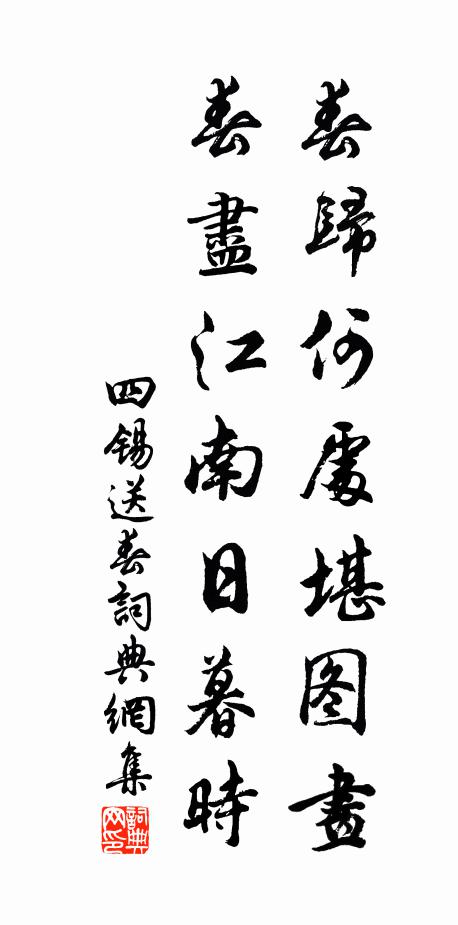 春歸何處堪图畫
春盡江南日暮時
四錫送春詞典網集
詞典网印